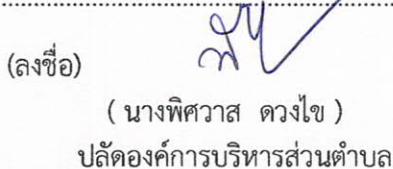 (ลงชื่อ)
( นางพิศวาส ดวงไข )
ปลัดองค์การบริหารส่วนตำบล